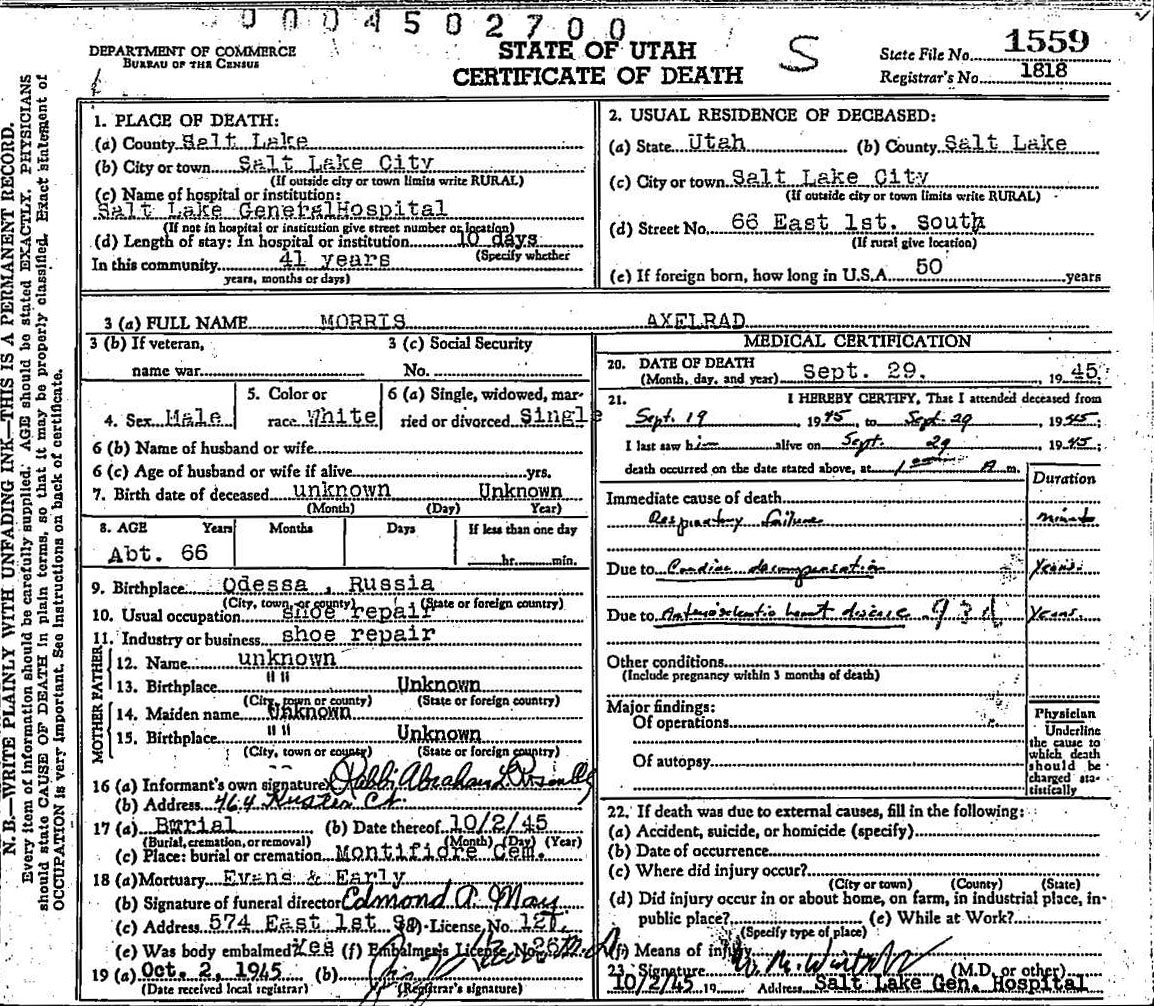 0004502700
DEPARTMENT OF COMMERCE
BUREAU OF THE CENSUS
STATE OF UTAH
CERTIFICATE OF DEATH
S
State File No. 1559
Registrar's No. 1818
N. B.—WRITE PLAINLY WITH UNFADING INK—THIS IS A PERMANENT RECORD.
Every item of information should be carefully supplied. AGE should be stated EXACTLY. PHYSICIANS
should state CAUSE OF DEATH in plain terms, so that it may be properly classified. Exact statement of
OCCUPATION is very important. See instructions on back of certificate.
1. PLACE OF DEATH:
(a) County Salt Lake
(b) City or town Salt Lake City
(If outside city or town limits write RURAL)
(c) Name of hospital or institution:
Salt Lake GeneralHospital
(If not in hospital or institution give street number or location)
(d) Length of stay: In hospital or institution 10 days
(Specify whether
In this community 41 years
years, months or days)
2. USUAL RESIDENCE OF DECEASED:
(a) State Utah (b) County Salt Lake
(c) City or town Salt Lake City
(If outside city or town limits write RURAL)
(d) Street No. 66 East 1st. South
(If rural give location)
(e) If foreign born, how long in U.S.A. 50 years
3 (a) FULL NAME MORRIS AXELRAD
3 (b) If veteran,
name war
3 (c) Social Security
No.
4. Sex Male
5. Color or
race White
6 (a) Single, widowed, mar-
ried or divorced Single
6 (b) Name of husband or wife
6 (c) Age of husband or wife if alive yrs.
7. Birth date of deceased unknown Unknown
(Month) (Day) Year)
8. AGE Years Months Days If less than one day
Abt. 66 hr. min.
9. Birthplace Odessa , Russia
(City, town, or county) (State or foreign country)
10. Usual occupation shoe repair
11. Industry or business shoe repair
FATHER
12. Name unknown
13. Birthplace "" Unknown
(City, town or county) (State or foreign country)
MOTHER
14. Maiden name Unknown
15. Birthplace "" Unknown
(City, town or county) (State or foreign country)
16 (a) Informant's own signature Rabbi Abraham L.
(b) Address 464 Ct.
17 (a) Burial (b) Date thereof 10/2/45
(Burial, cremation, or removal) (Month) (Day) (Year)
(c) Place: burial or cremation Montifiore Cem.
18 (a) Mortuary Evans & Early
(b) Signature of funeral director Edmond A. May
(c) Address 574 East 1st So (d) License No. 121
(e) Was body embalmed? Yes (f) Embalmer's License No. 267
19 (a) Oct. 2, 1945 (b)
(Date received local registrar) (Registrar's signature)
MEDICAL CERTIFICATION
20. DATE OF DEATH
(Month, day, and year) Sept. 29. , 19 45.
21. I HEREBY CERTIFY, That I attended deceased from
Sept. 19 1945, to Sept. 29, 1945;
I last saw him alive on Sept. 29 1945;
death occurred on the date stated above, at 1 00 A m.
Duration
Immediate cause of death
Respiratory failure minutes
Due to Cardiac decompensation years.
Due to Arteriosclerotic heart disease. 93d years.
Other conditions
(Include pregnancy within 3 months of death)
Major findings:
Of operations
Of autopsy
Physician
Underline
the cause to
which death
should be
charged sta-
tistically
22. If death was due to external causes, fill in the following:
(a) Accident, suicide, or homicide (specify)
(b) Date of occurrence
(c) Where did injury occur?
(City or town) (County) (State)
(d) Did injury occur in or about home, on farm, in industrial place, in-
public place? (e) While at Work?
(Specify type of place)
(f) Means of injury
23. Signature (M.D. or other)
10/2/45 19 Address Salt Lake Gen. Hospital